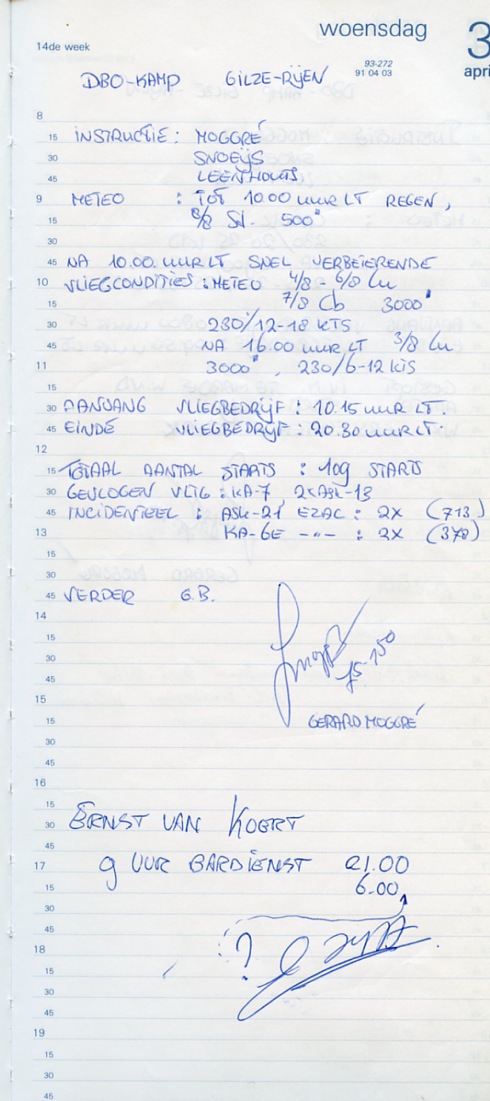 woensdag 3
14de week 93-272 april
91 04 03
DBO-KAMP GILZE-RIJEN
8
15 INSTRUCTIE: MOGGRÉ
30 SNOEIJS
45 LEENHOUTS
9 METEO : TOT 10.00 UUR LT REGEN,
15 8/8 St. 500'
30
45 NA 10.00 UUR LT SNEL VERBETERENDE
10 VLIEGCONDITIES: METEO 4/8 - 6/8 Cu
15 7/8 Cb 3000'
30 230/12-18 KTS
45 NA 16.00 UUR LT 3/8 Cu
11 3000', 230/6-12 KTS
15
30 AANVANG VLIEGBEDRIJF: 10.15 UUR LT.
45 EINDE VLIEGBEDRIJF: 20.30 UUR LT.
12
15 TOTAAL AANTAL STARTS : 109 STARTS
30 GEVLOGEN VLTG: KA-7, 2xASK-13
45 INCIDENTEEL : ASK-21 EZAC : 2X (713)
13 KA-6E -"- : 2X (378)
15
30
45 VERDER G.B.
14
15
30
45
15
15 GERARD MOGGRÉ
30
45
16
15
30 ERNST VAN KOERT
45
17 9 UUR BARDIENST 21.00
15 6.00
30
45
18 ?
15
30
45
19
15
30
45